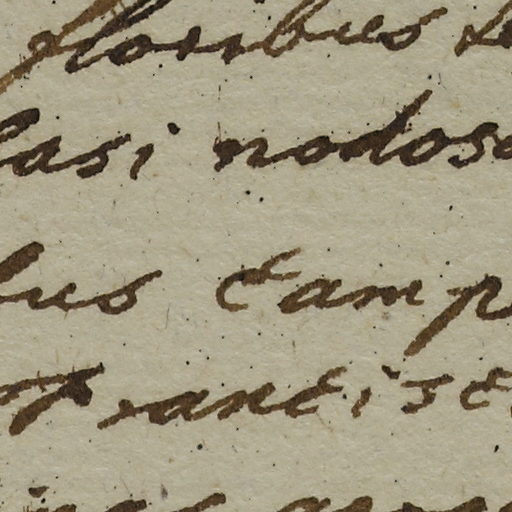 floribus
basi nodoso
bus camp
Francisc